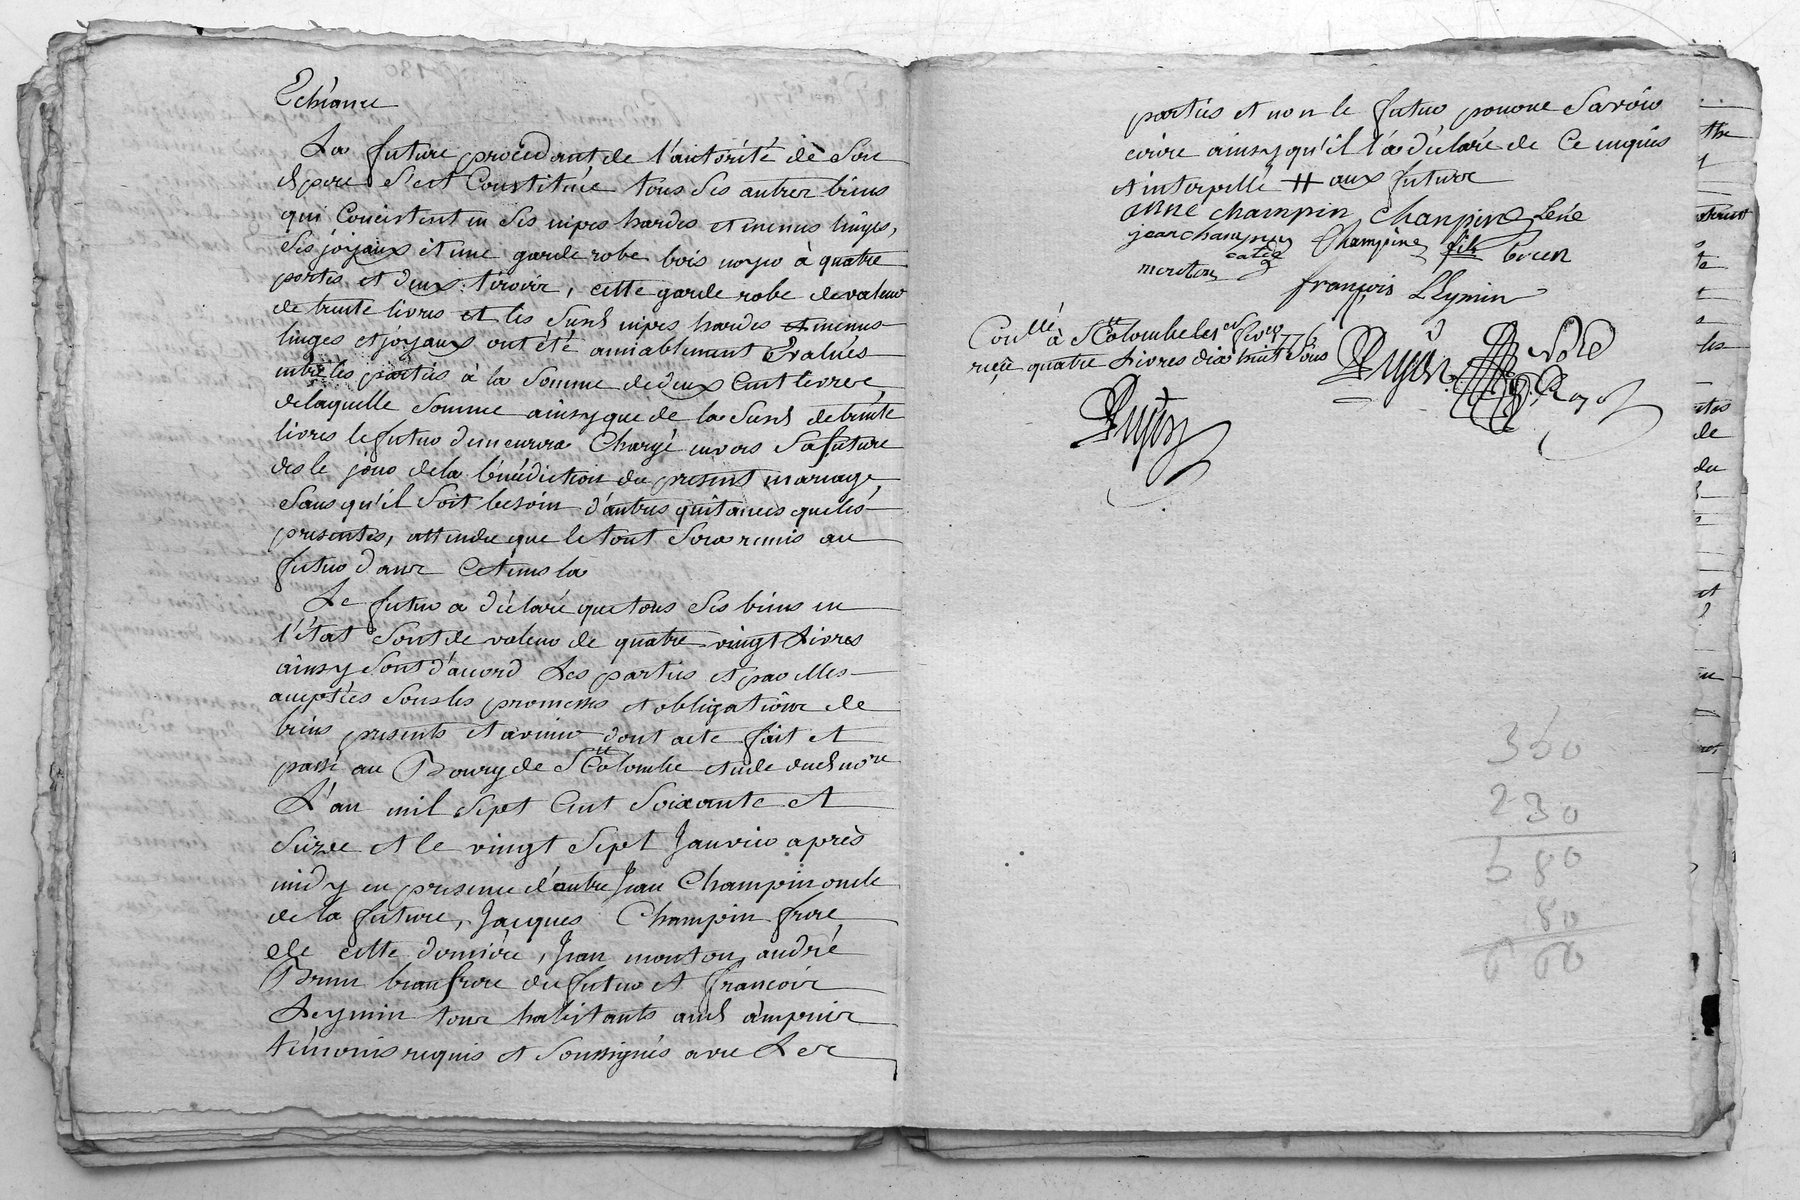 Echéance
La future procédant de l'autorité de son
d. pere s'est Constituée tous ses autres biens
qui Concistent en ses nipes hardes et menus linges,
ses joyaux et une garde robe bois noyer à quatre
portes et deux tiroirs, cette garde robe de valeur
de trente livres et les susd nipes hardes et menus
linges et joyaux ont été amiablement Evalués
entre les parties à la somme de deux Cent livres,
de laquelle somme ainsy que de la susd de trente
livres le futur demeurera Chargé envers sa future
des le jour de la bénédiction du present mariage,
sans qu'il soit besoin d'autres quitances que les
presentes, attendu que le tout sera remis au
futur dans Cet tems la
Le futur a déclaré que tous ses biens en
l'état sont de valeur de quatre vingt Livres
ainsy sont d'accord Les parties et par elles
acceptées sous les promesses et obligations de
biens presents et avenir dont acte fait et
passé au Bourg de Ste Colombe etude dud nore
L'an mil sept Cent soixante et
seize et le vingt sept Janvier après
midy en presence d'autre Jean Champin oncle
de la future, Jacques Champin frere
de cette derniére, Jean monton, andré
Brun beaufrere du futur et francois
Leymin tous habitants aud ampuis
témoins requis et soussignés avec Les
parties et non le futur pour ne savoir
ecrire ainsy qu'il l'a déclaré de Ce enquis
et interpellé # aux futurs
anne champin Chanpin Pere
jean champin Champine fils brun
monton
françois LEymin
Conllé à Ste Colombe le 1er fevr 1776
reçu quatre Livres dix huit sous
350
230
580
80
660